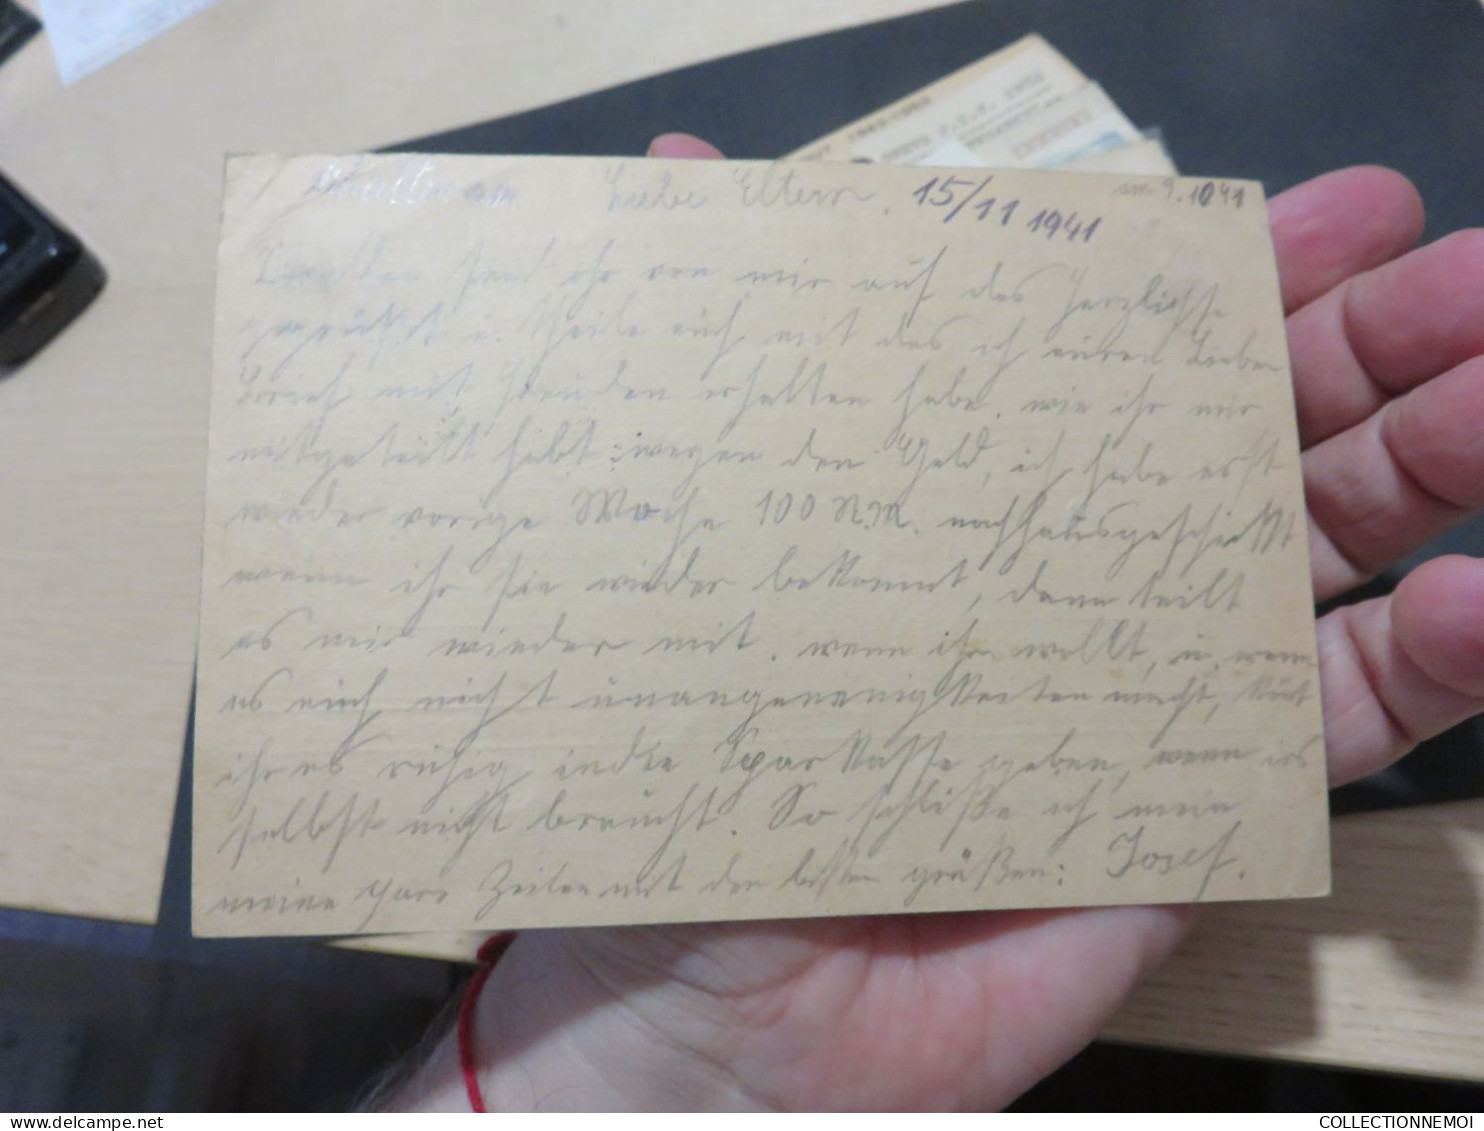 Liebe Eltern. 15/11 1941 am 9.1041
seid ihr von mir auf das Herzlichste
gegrüßt u. theile euch mit das ich euren Lieben
Brief mit Freuden erhalten habe. wie ihr mir
mitgeteilt habt wegen den Geld, ich habe erst
wieder vorige Woche 100 R.M. nachhausgeschickt
wenn ihr sie wieder bekommt, dann teilt
es mir wieder mit. wenn ihr wollt, u. wenn
es euch nicht unangenemigkeiten macht, könt
ihr es ruhig in die Sparkasse geben, wenn irs
selbst nicht braucht. So schließe ich mein
meine par Zeilen mit den besten grüßen: Josef.
COLLECTIONNEMOI